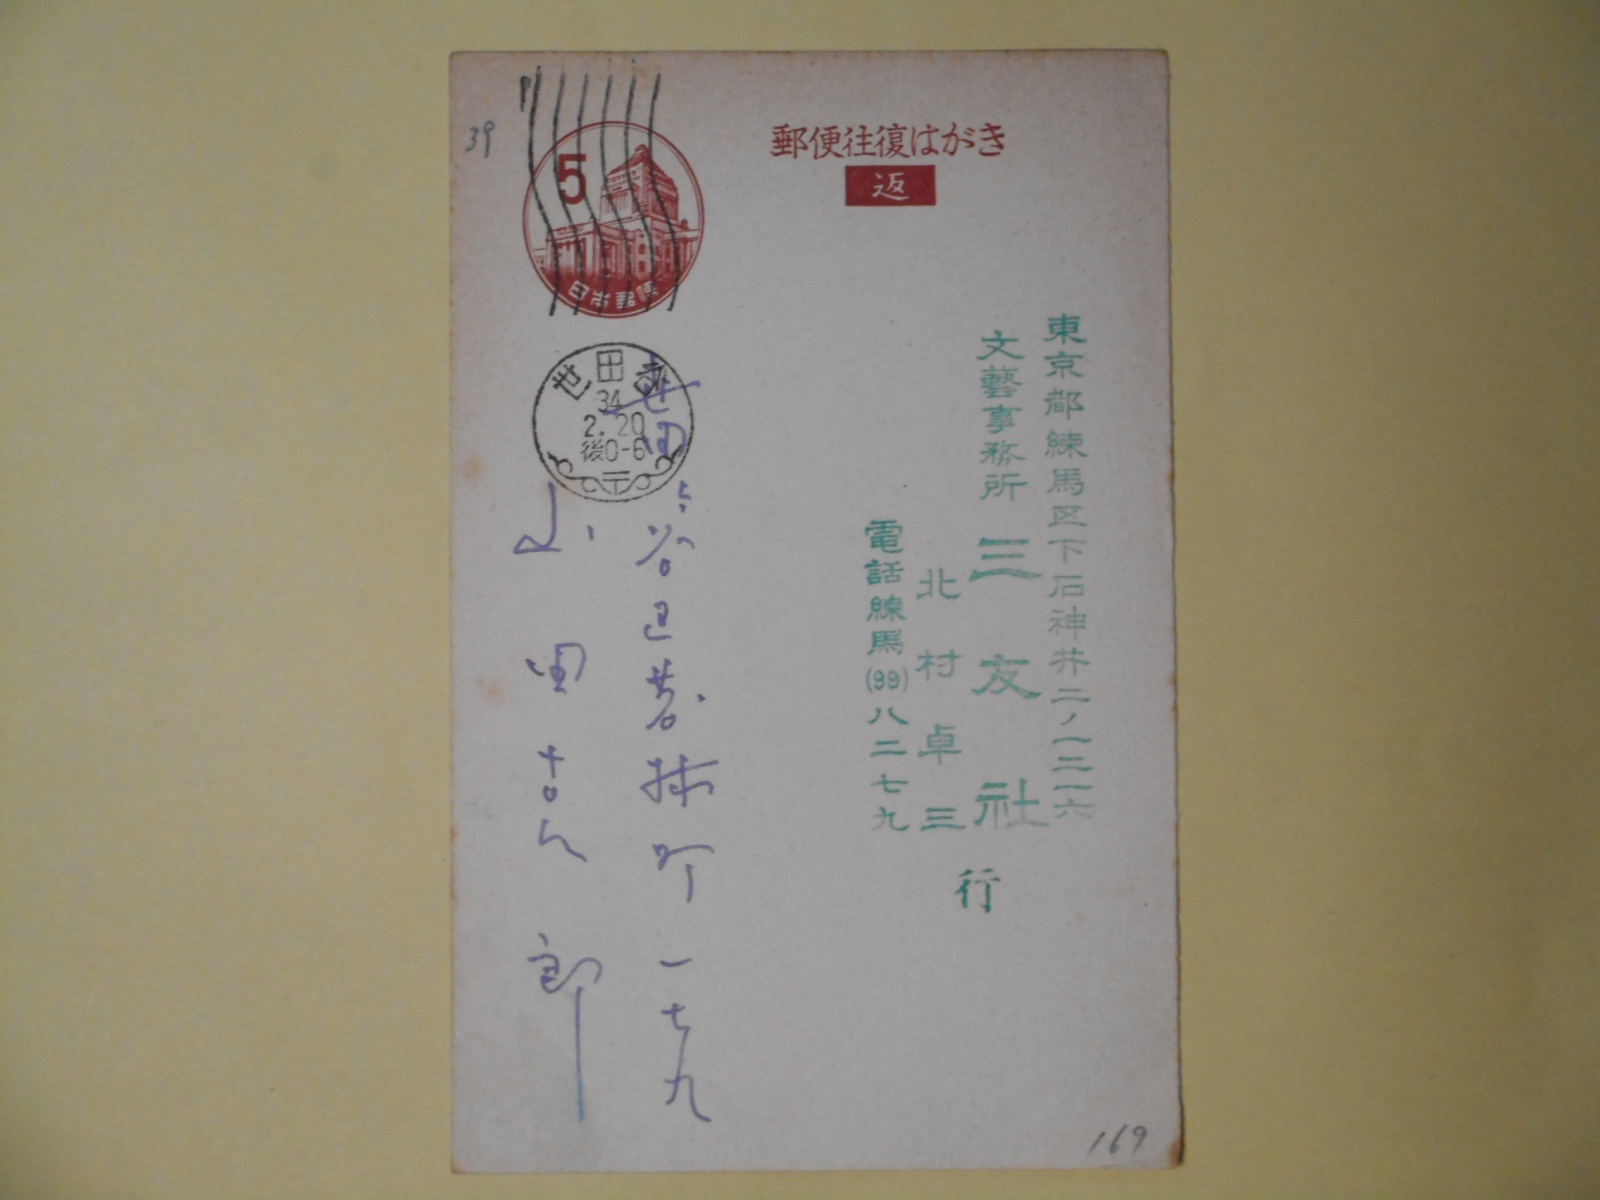 郵便往復はがき
返
東京都練馬区下石神井二ノ一二一六
文藝事務所 三友社
北村卓三
行
電話練馬(99)八二七九
39
5
日本郵便
世田谷
34
2.20
後0-6
世田谷区若林町一七九
山田吉郎
169